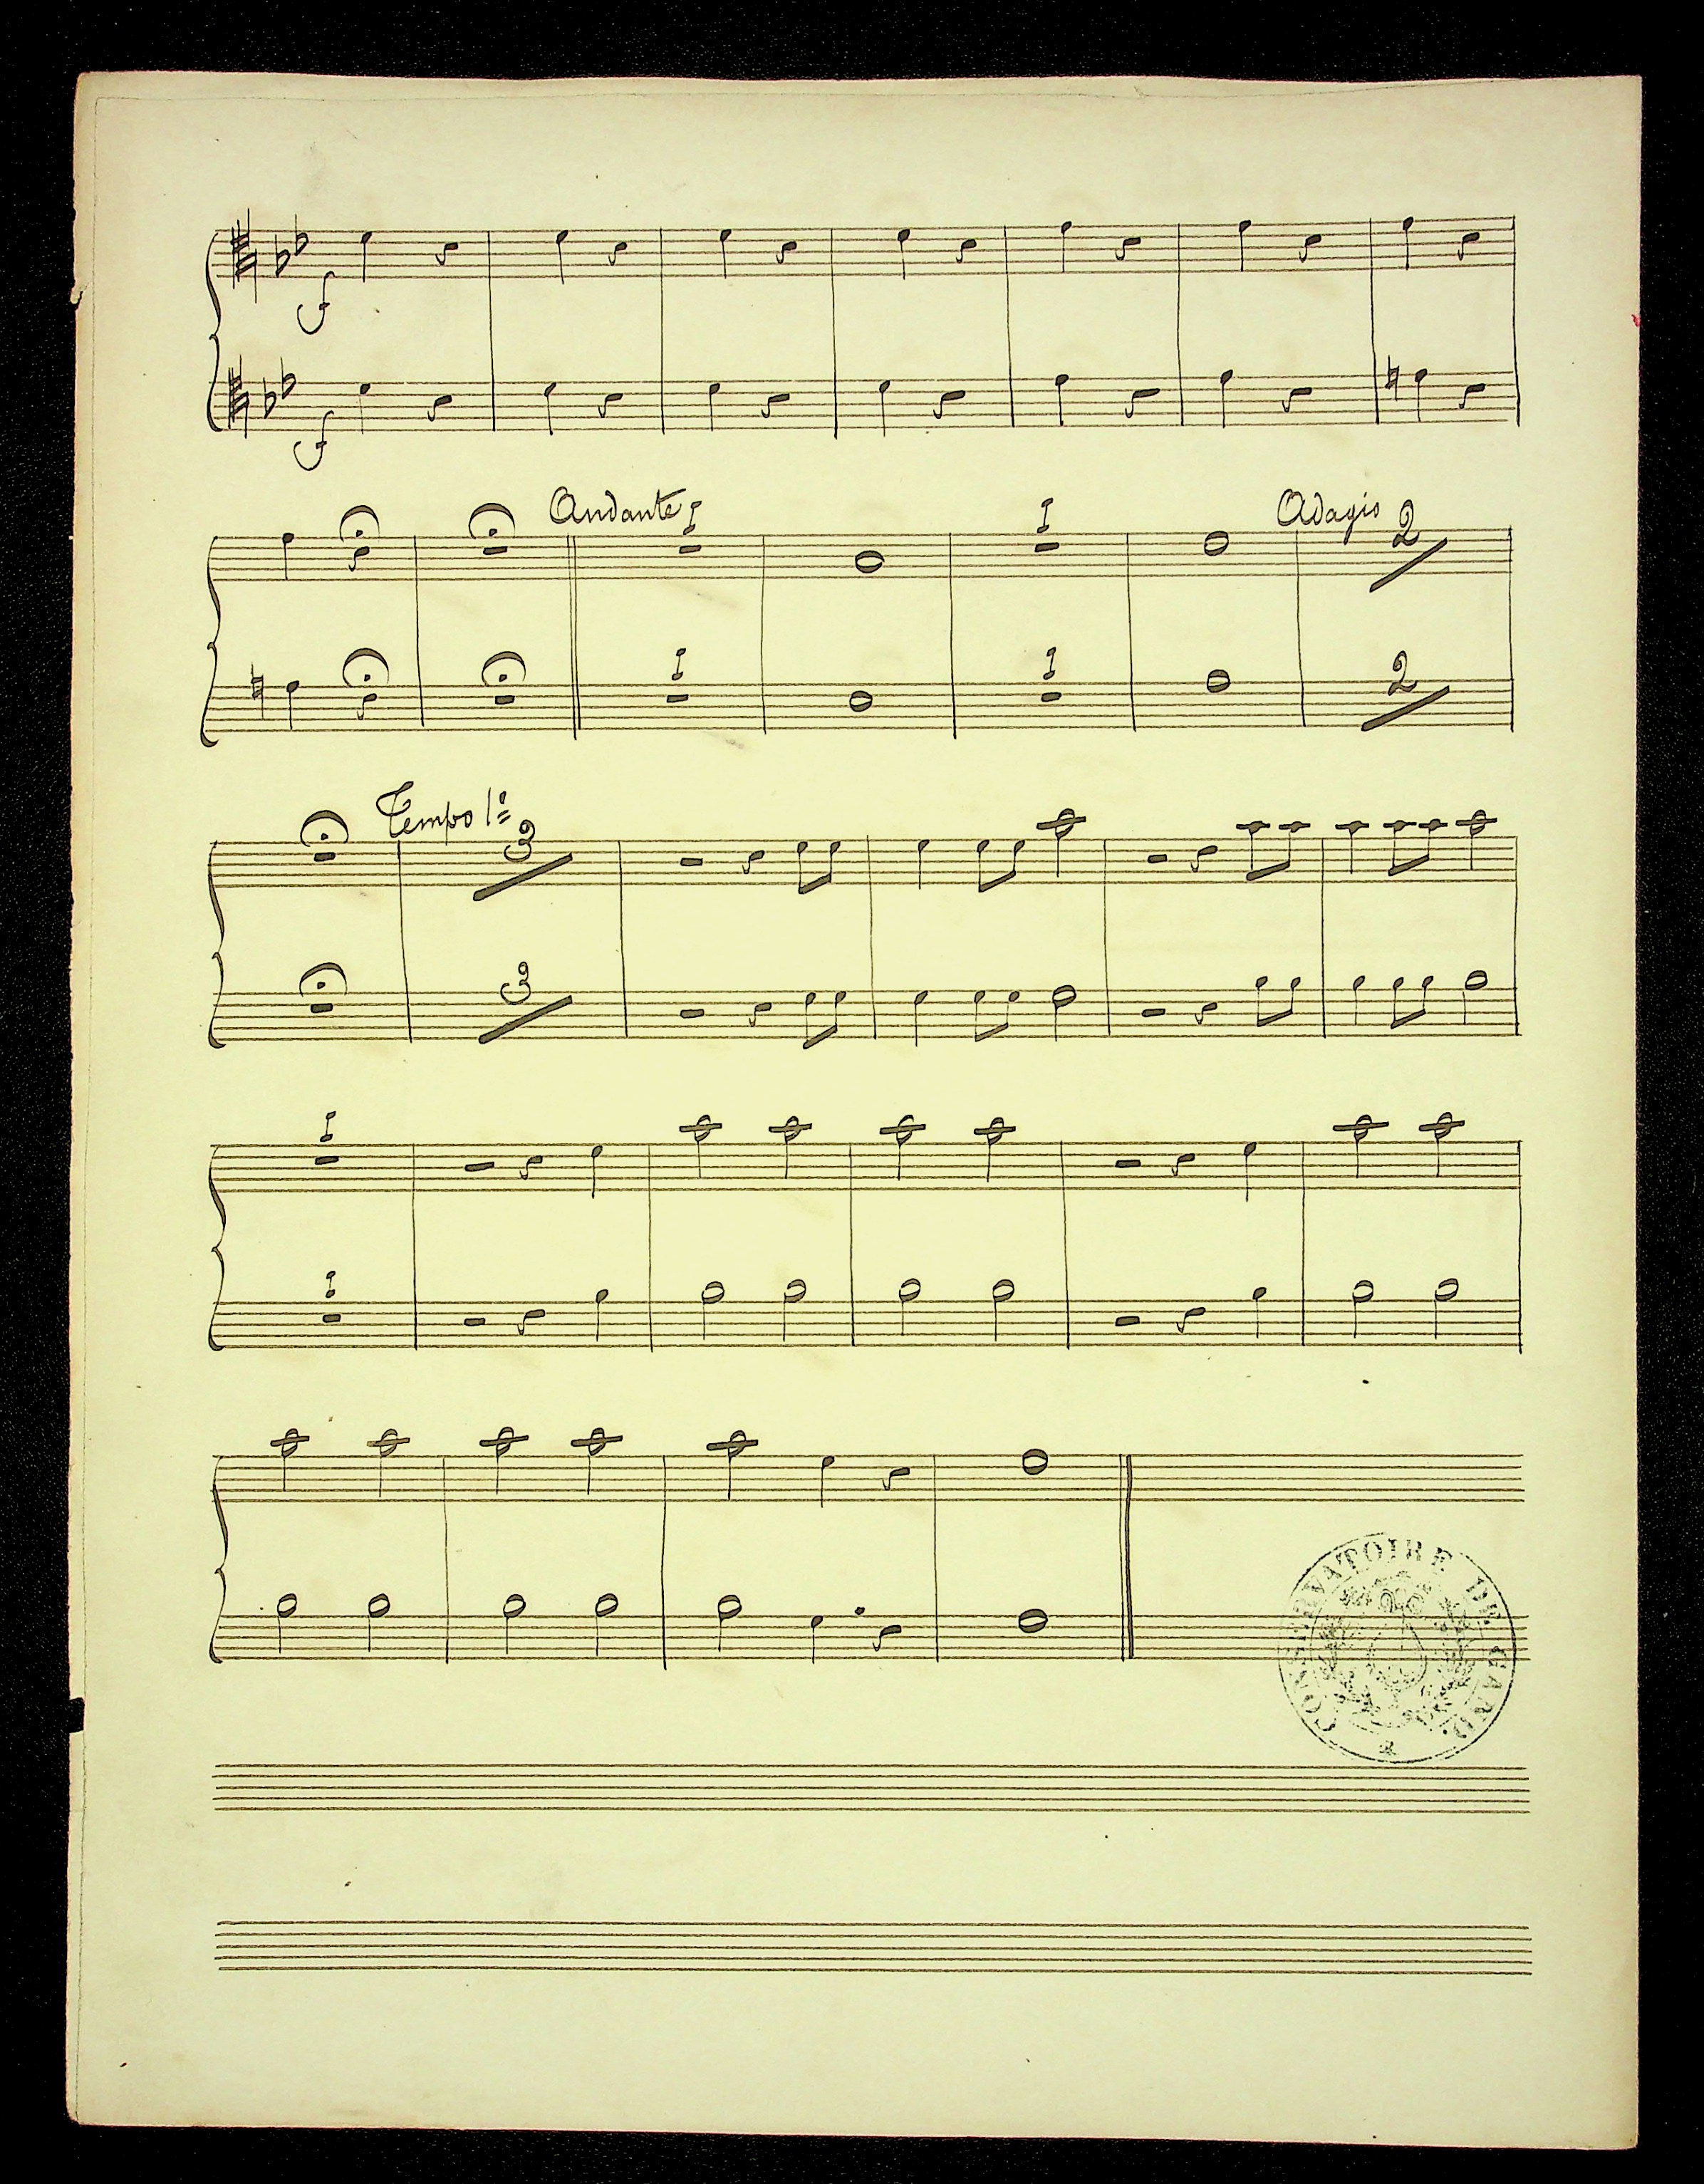 f
f
Andante 1 1 Adagio 2
1 1 2
Tempo 1º 3
3
1
1
CONSERVATOIRE DE GAND.